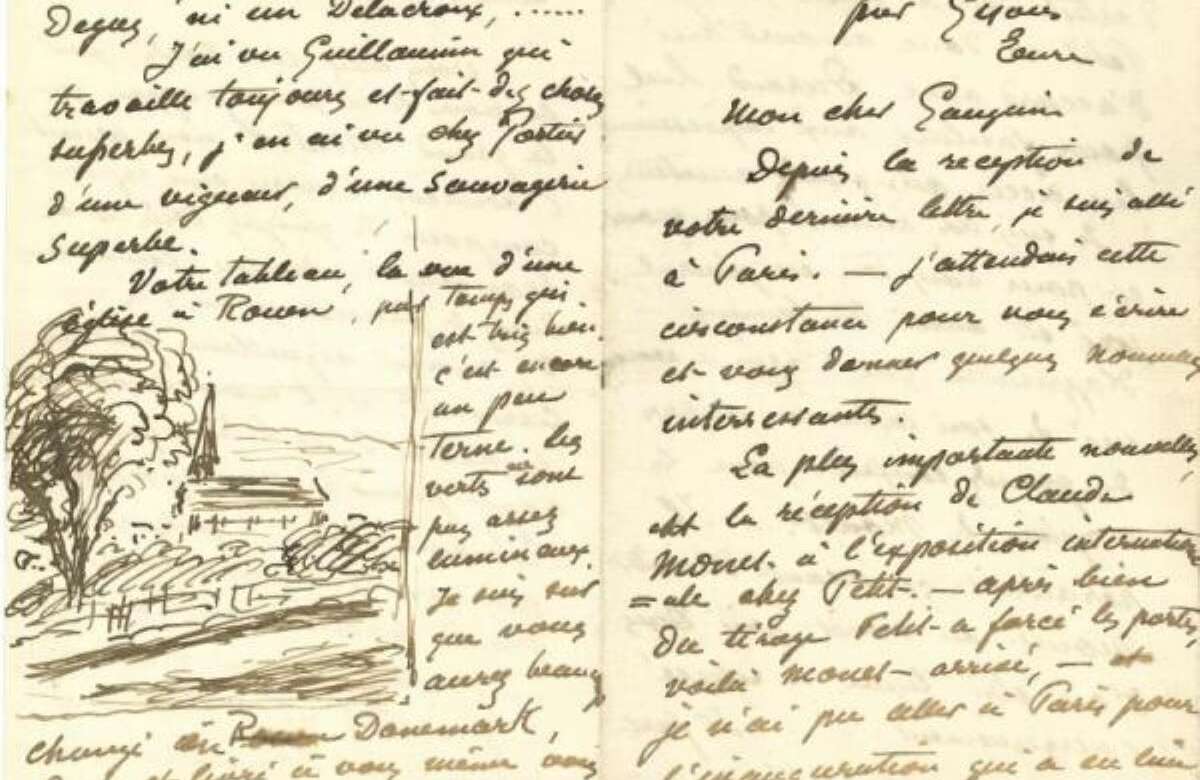 Degas, ni un Delacroix, ......
J'ai vu Guillaumin qui
travaille toujours et fait des choses
superbes, j'en ai vu chez Portier
d'une vigueur, d'une sauvagerie
superbe.
Votre tableau, la vue d'une
église à Rouen, par temps gris
est très bien.
c'est encore
un peu
terne. les
verts sont
pas assez
lumineux.
Je suis sûr
que vous
aurez beaucoup
changé en Danemark,
livré à vous même vous
par Gisors
Eure
Mon cher Gauguin
Depuis la reception de
votre dernière lettre, je suis allé
à Paris. — j'attendais cette
circonstance pour vous écrire
et vous donner quelques nouvelles
interressantes.
La plus importante nouvelle,
est la réception de Claude
Monet à l'exposition internation
=ale chez Petit. — après bien
du tirage Petit a forcé les portes
voilà Monet arrivé, — et
je n'ai pu aller à Paris pour
l'inauguration qui a eu lieu